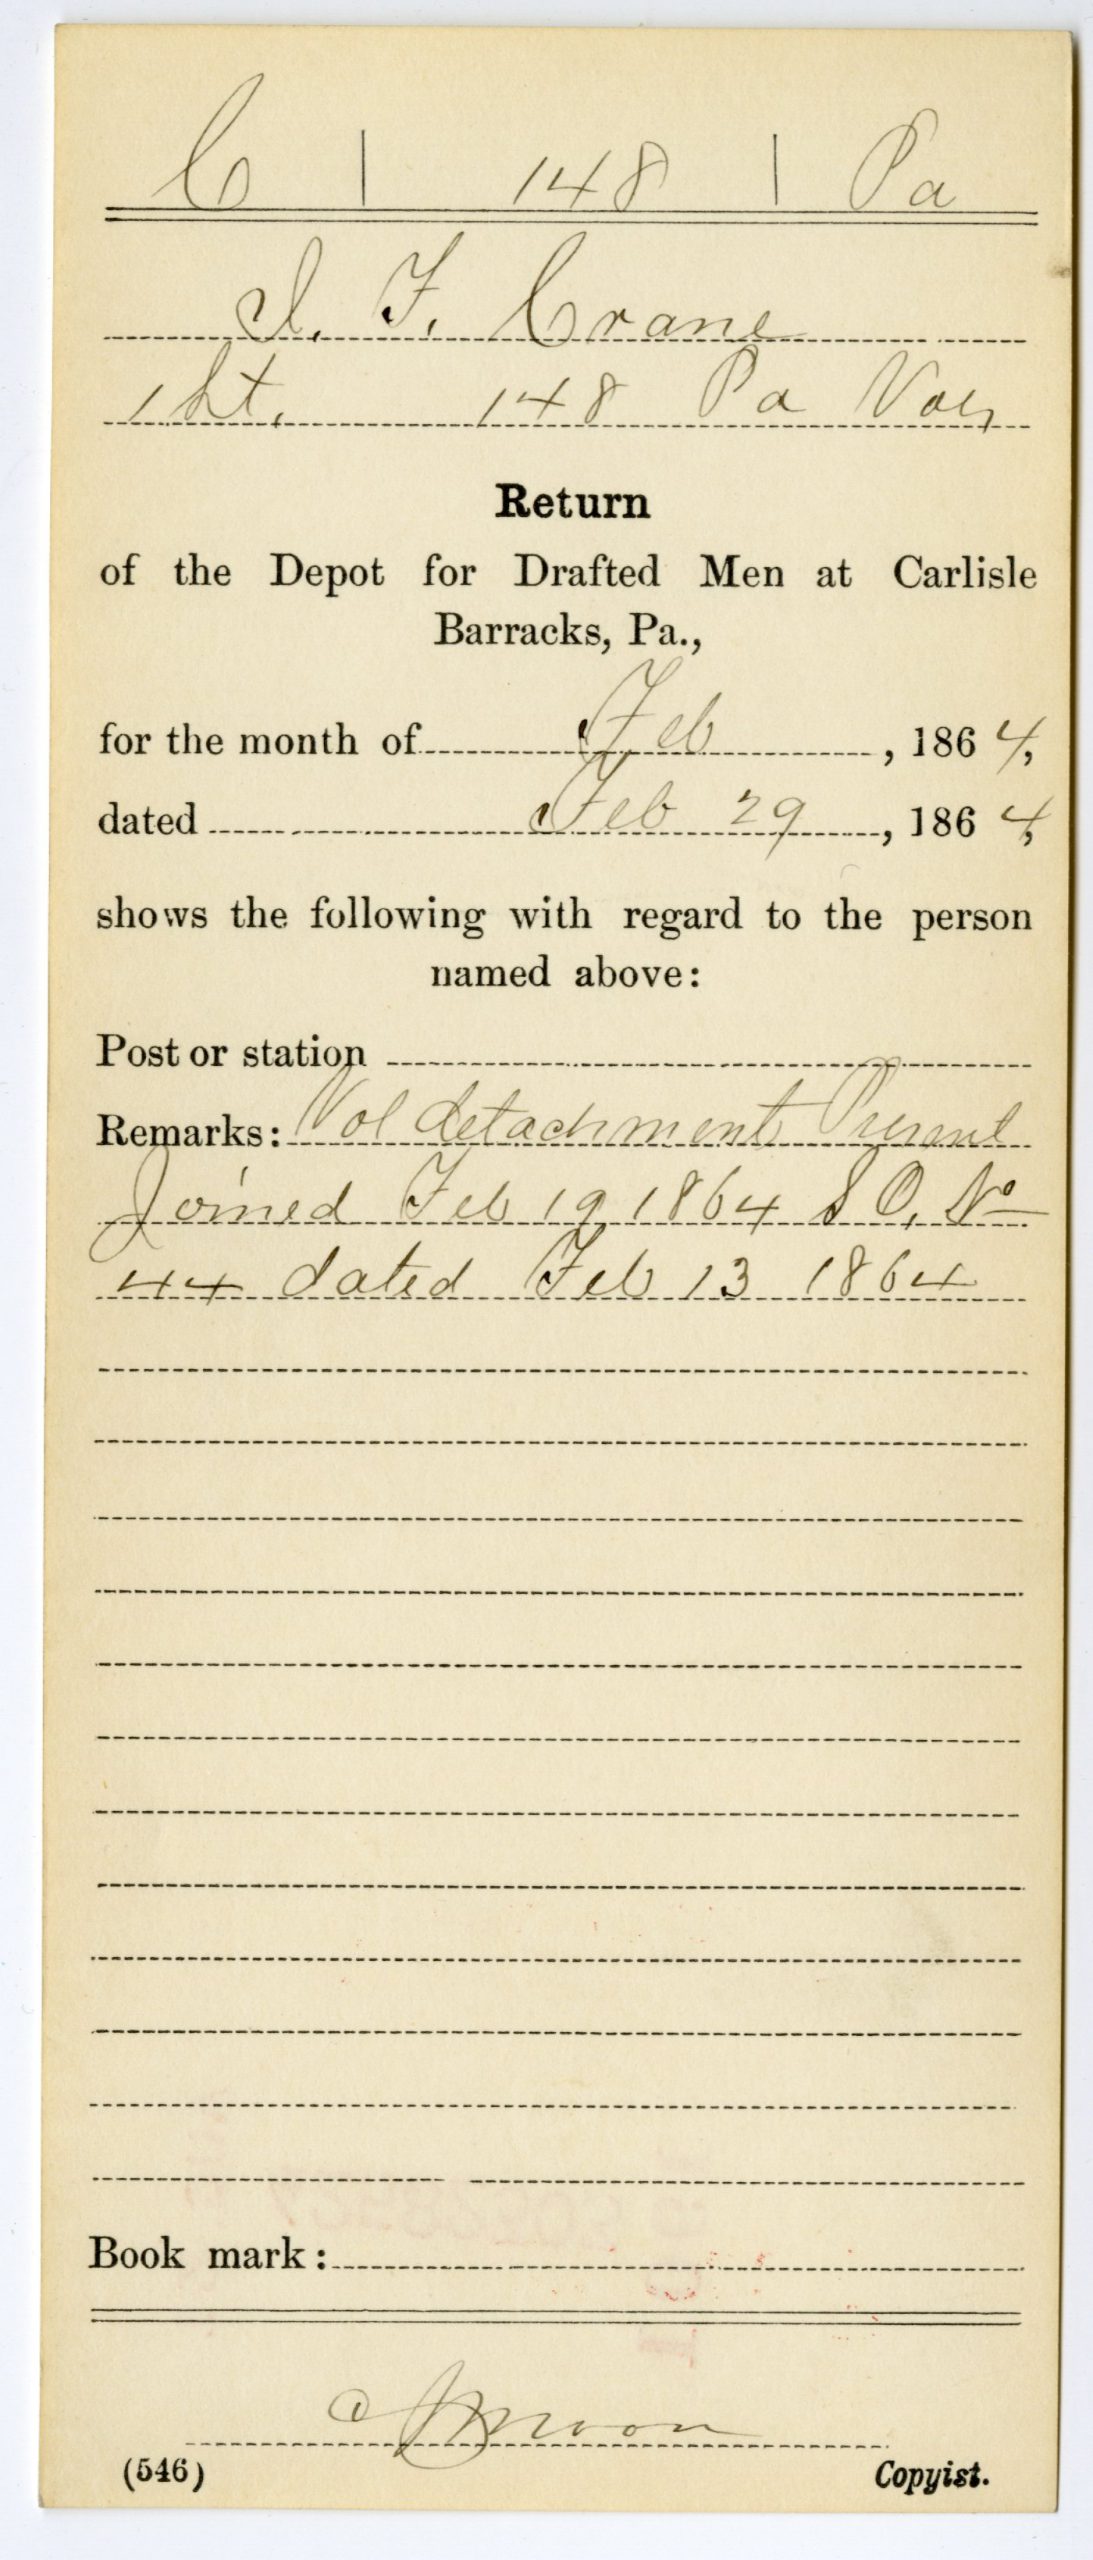 C | 148 | Pa
I. F. Crane
1 Lt. 148 Pa Vols
Return
of the Depot for Drafted Men at Carlisle
Barracks, Pa.,
for the month of Feb, 1864,
dated Feb 29, 1864,
shows the following with regard to the person
named above:
Post or station
Remarks: Vol detachment Present
Joined Feb 19 1864 S O, No
44 dated Feb 13 1864
Book mark:
Moon
(546) Copyist.